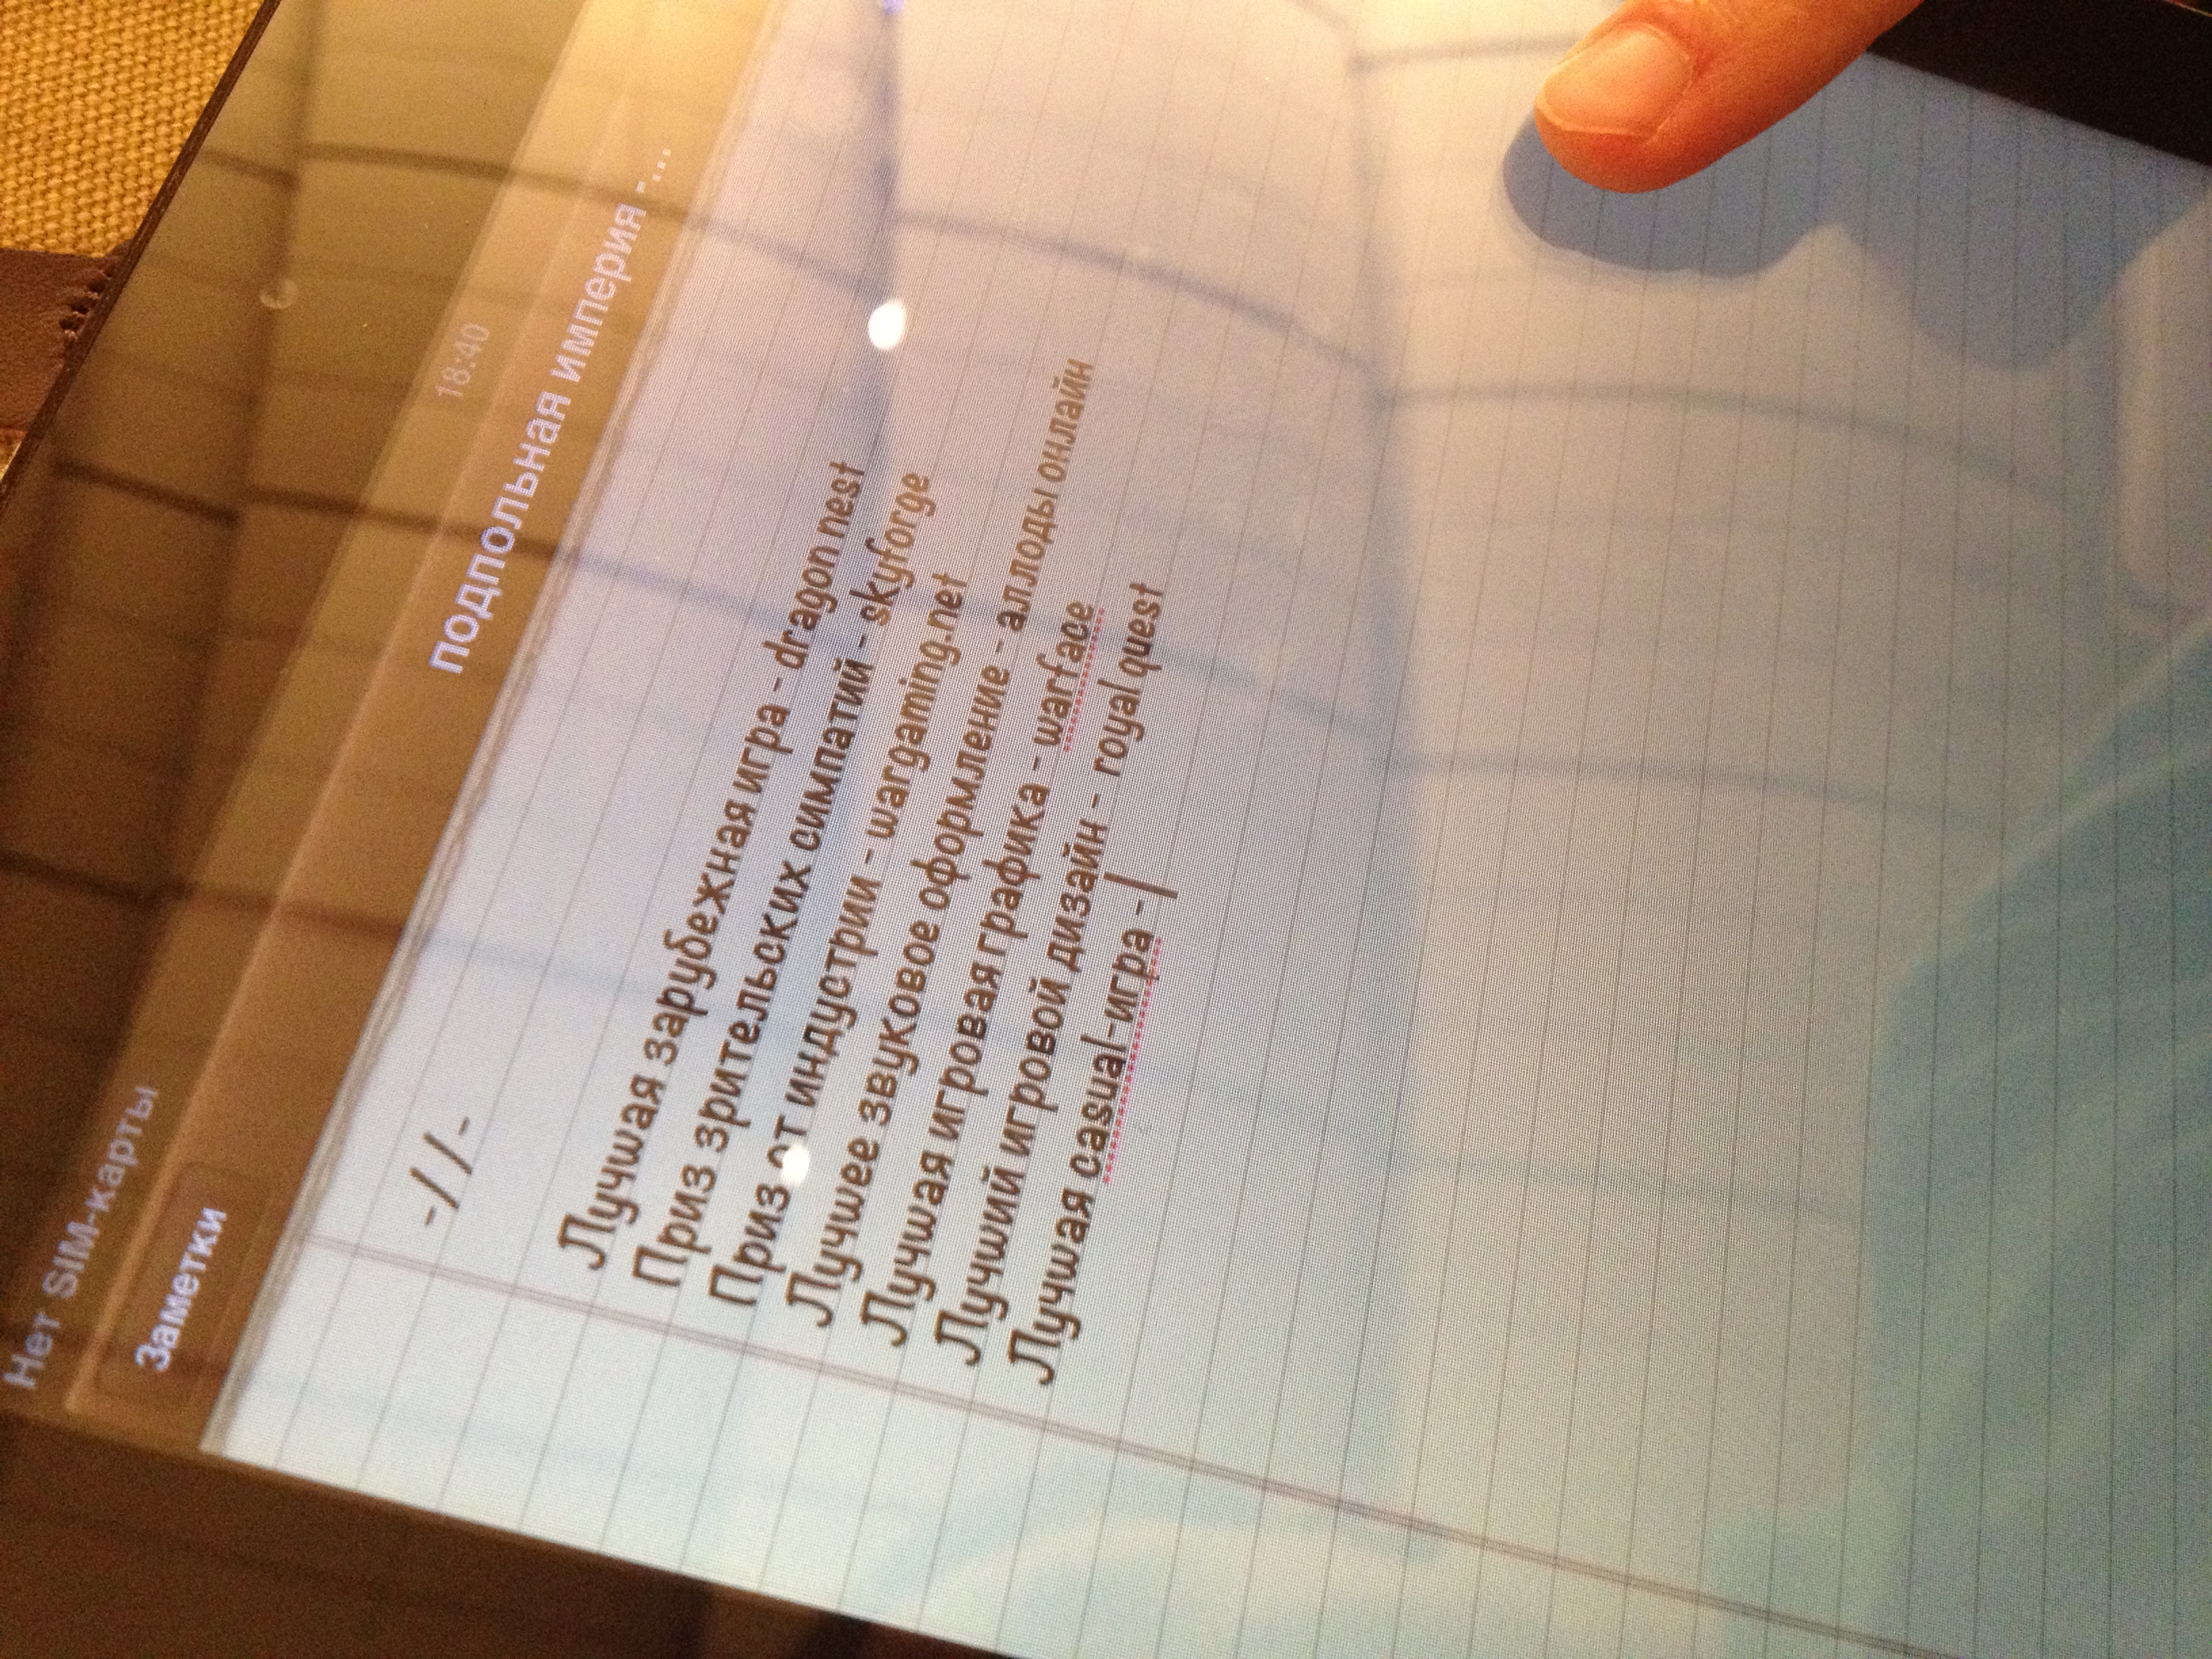 Нет SIM-карты 18:40
Заметки подпольная империя -...
-//-
Лучшая зарубежная игра - dragon nest
Приз зрительских симпатий - skyforge
Приз от индустрии - wargaming.net
Лучшее звуковое оформление - аллоды онлайн
Лучшая игровая графика - warface
Лучший игровой дизайн - royal quest
Лучшая casual-игра -